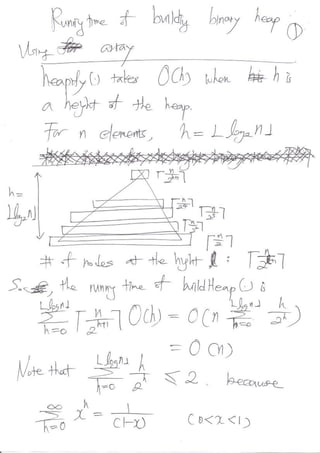 Running time of building binary heap ①
Using array
heapify(·) takes O(h) when h is
a height of the heap.
For n elements, h = ⌊log₂ n⌋
h =
⌊log₂ n⌋
⌈n/2^{h+1}⌉
⌈n/2⁴⌉
⌈n/2³⌉
⌈n/2²⌉
⌈n/2⌉
# of nodes at the hight l : ⌈n/2^{l+1}⌉
So, the running time of buildHeap(·) is
∑_{h=0}^{⌊log n⌋} ⌈n/2^{h+1}⌉ O(h) = O(n ∑_{h=0}^{⌊log n⌋} h/2^h)
= O(n)
Note that ∑_{h=0}^{⌊log n⌋} h/2^h ≤ 2. because
∑_{h=0}^{∞} x^h = 1/(1-x) (0<x<1)